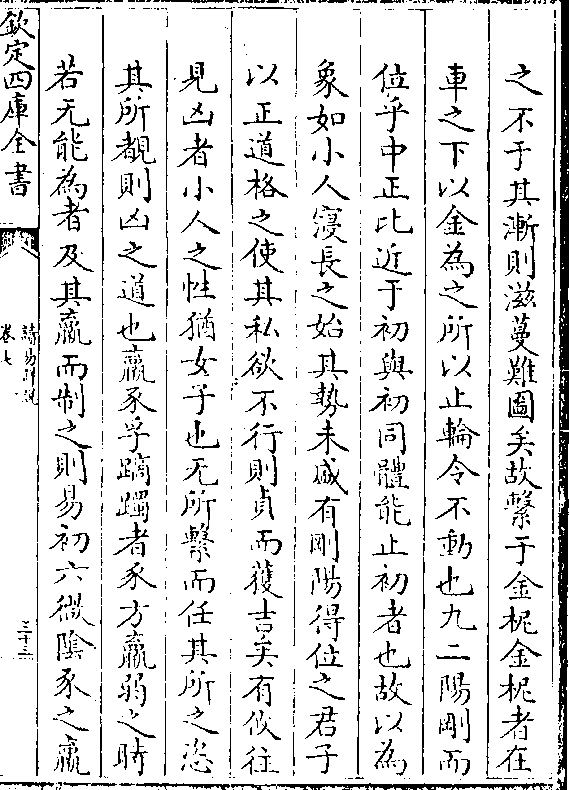 之不于其漸則滋蔓難圖矣故繫于金柅金柅者在
車之下以金為之所以止輪令不動也九二陽剛而
位乎中正比近于初與初同體能止初者也故以為
象如小人寖長之始其勢未盛有剛陽得位之君子
以正道格之使其私欲不行則貞而獲吉矣有攸往
見凶者小人之性猶女子也无所繫而任其所之恣
其所覩則凶之道也羸豕孚蹢躅者豕方羸弱之時
若无能為者及其羸而制之則易初六微陰豕之羸
欽定四庫全書
讀易詳說
卷七
三十三